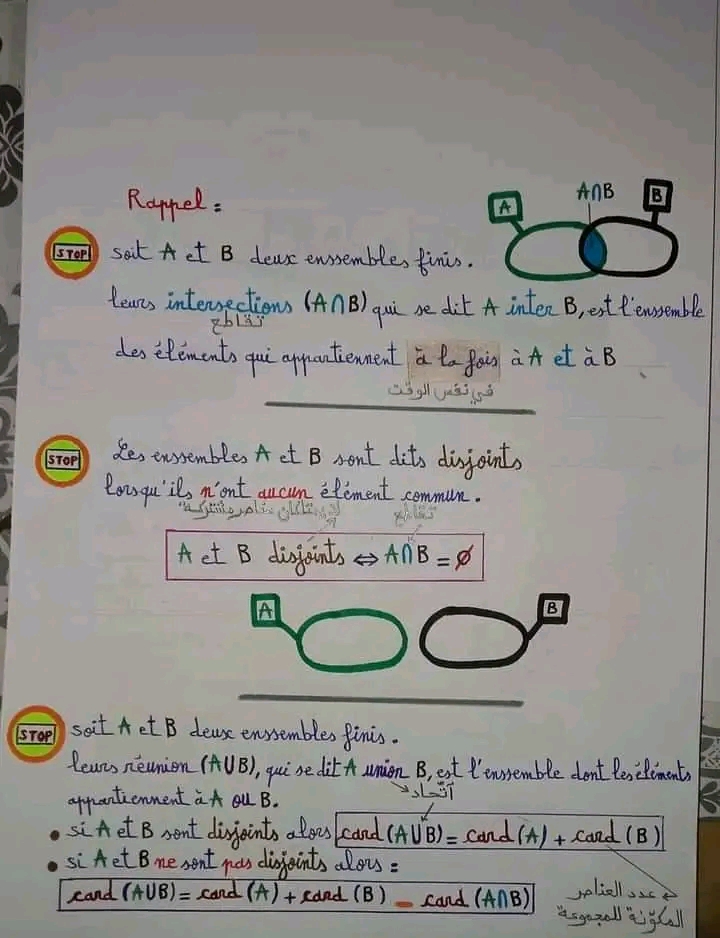 Rappel :
A A∩B B
STOP soit A et B deux enssembles finis.
leurs intersections (A∩B) qui se dit A inter B, est l'enssemble
تقاطع
des éléments qui appartiennent à la fois à A et à B
في نفس الوقت
STOP Les enssembles A et B sont dits disjoints
lorsqu'ils n'ont aucun élément commun.
لا يمتلكان عناصر مشتركة تقاطع
A et B disjoints ⇔ A∩B = ∅
A B
STOP soit A et B deux enssembles finis.
leurs réunion (A∪B), qui se dit A union B, est l'ensemble dont les éléments
اتّحاد
appartiennent à A ou B.
• si A et B sont disjoints alors card (A∪B) = card (A) + card (B)
• si A et B ne sont pas disjoints alors :
card (A∪B) = card (A) + card (B) - card (A∩B)
عدد العناصر
المكوّنة للمجموعة